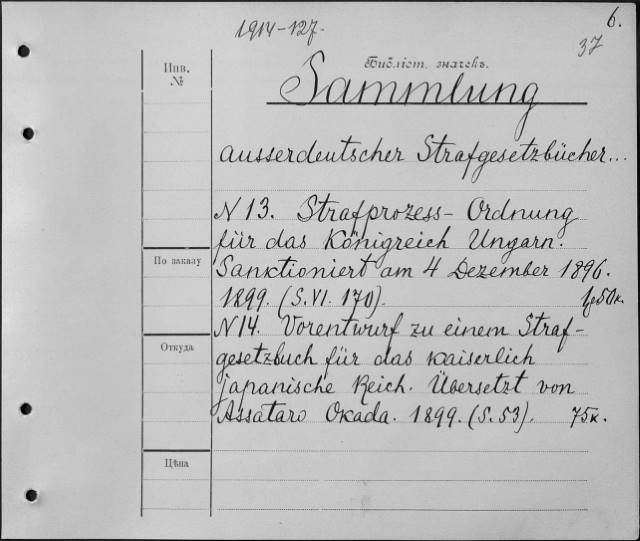 1914-127.
6.
37
Инв.
№
Библіот. значекъ.
Sammlung
ausserdeutscher Strafgesetzbücher...
N 13. Strafprozess- Ordnung
für das Königreich Ungarn.
По заказу
Sanktioniert am 4 Dezember 1896.
1899. (S.VI. 170). 1р50к.
N14. Vorentwurf zu einem Straf-
Откуда
gesetzbuch für das kaiserlich
japanische Reich. Übersetzt von
Assataro Okada. 1899. (S. 53). 75к.
Цѣна